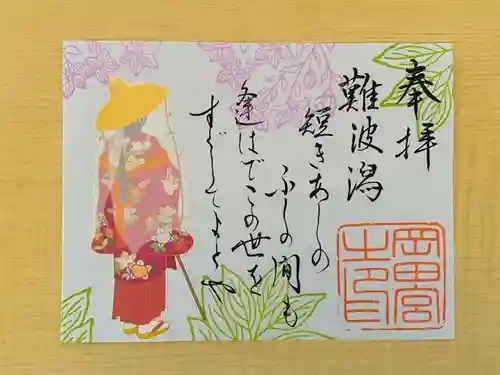 奉拝
難波潟
短きあしの
ふしの間も
逢はでこの世を
すぐしてよとや
岡田宮
之印